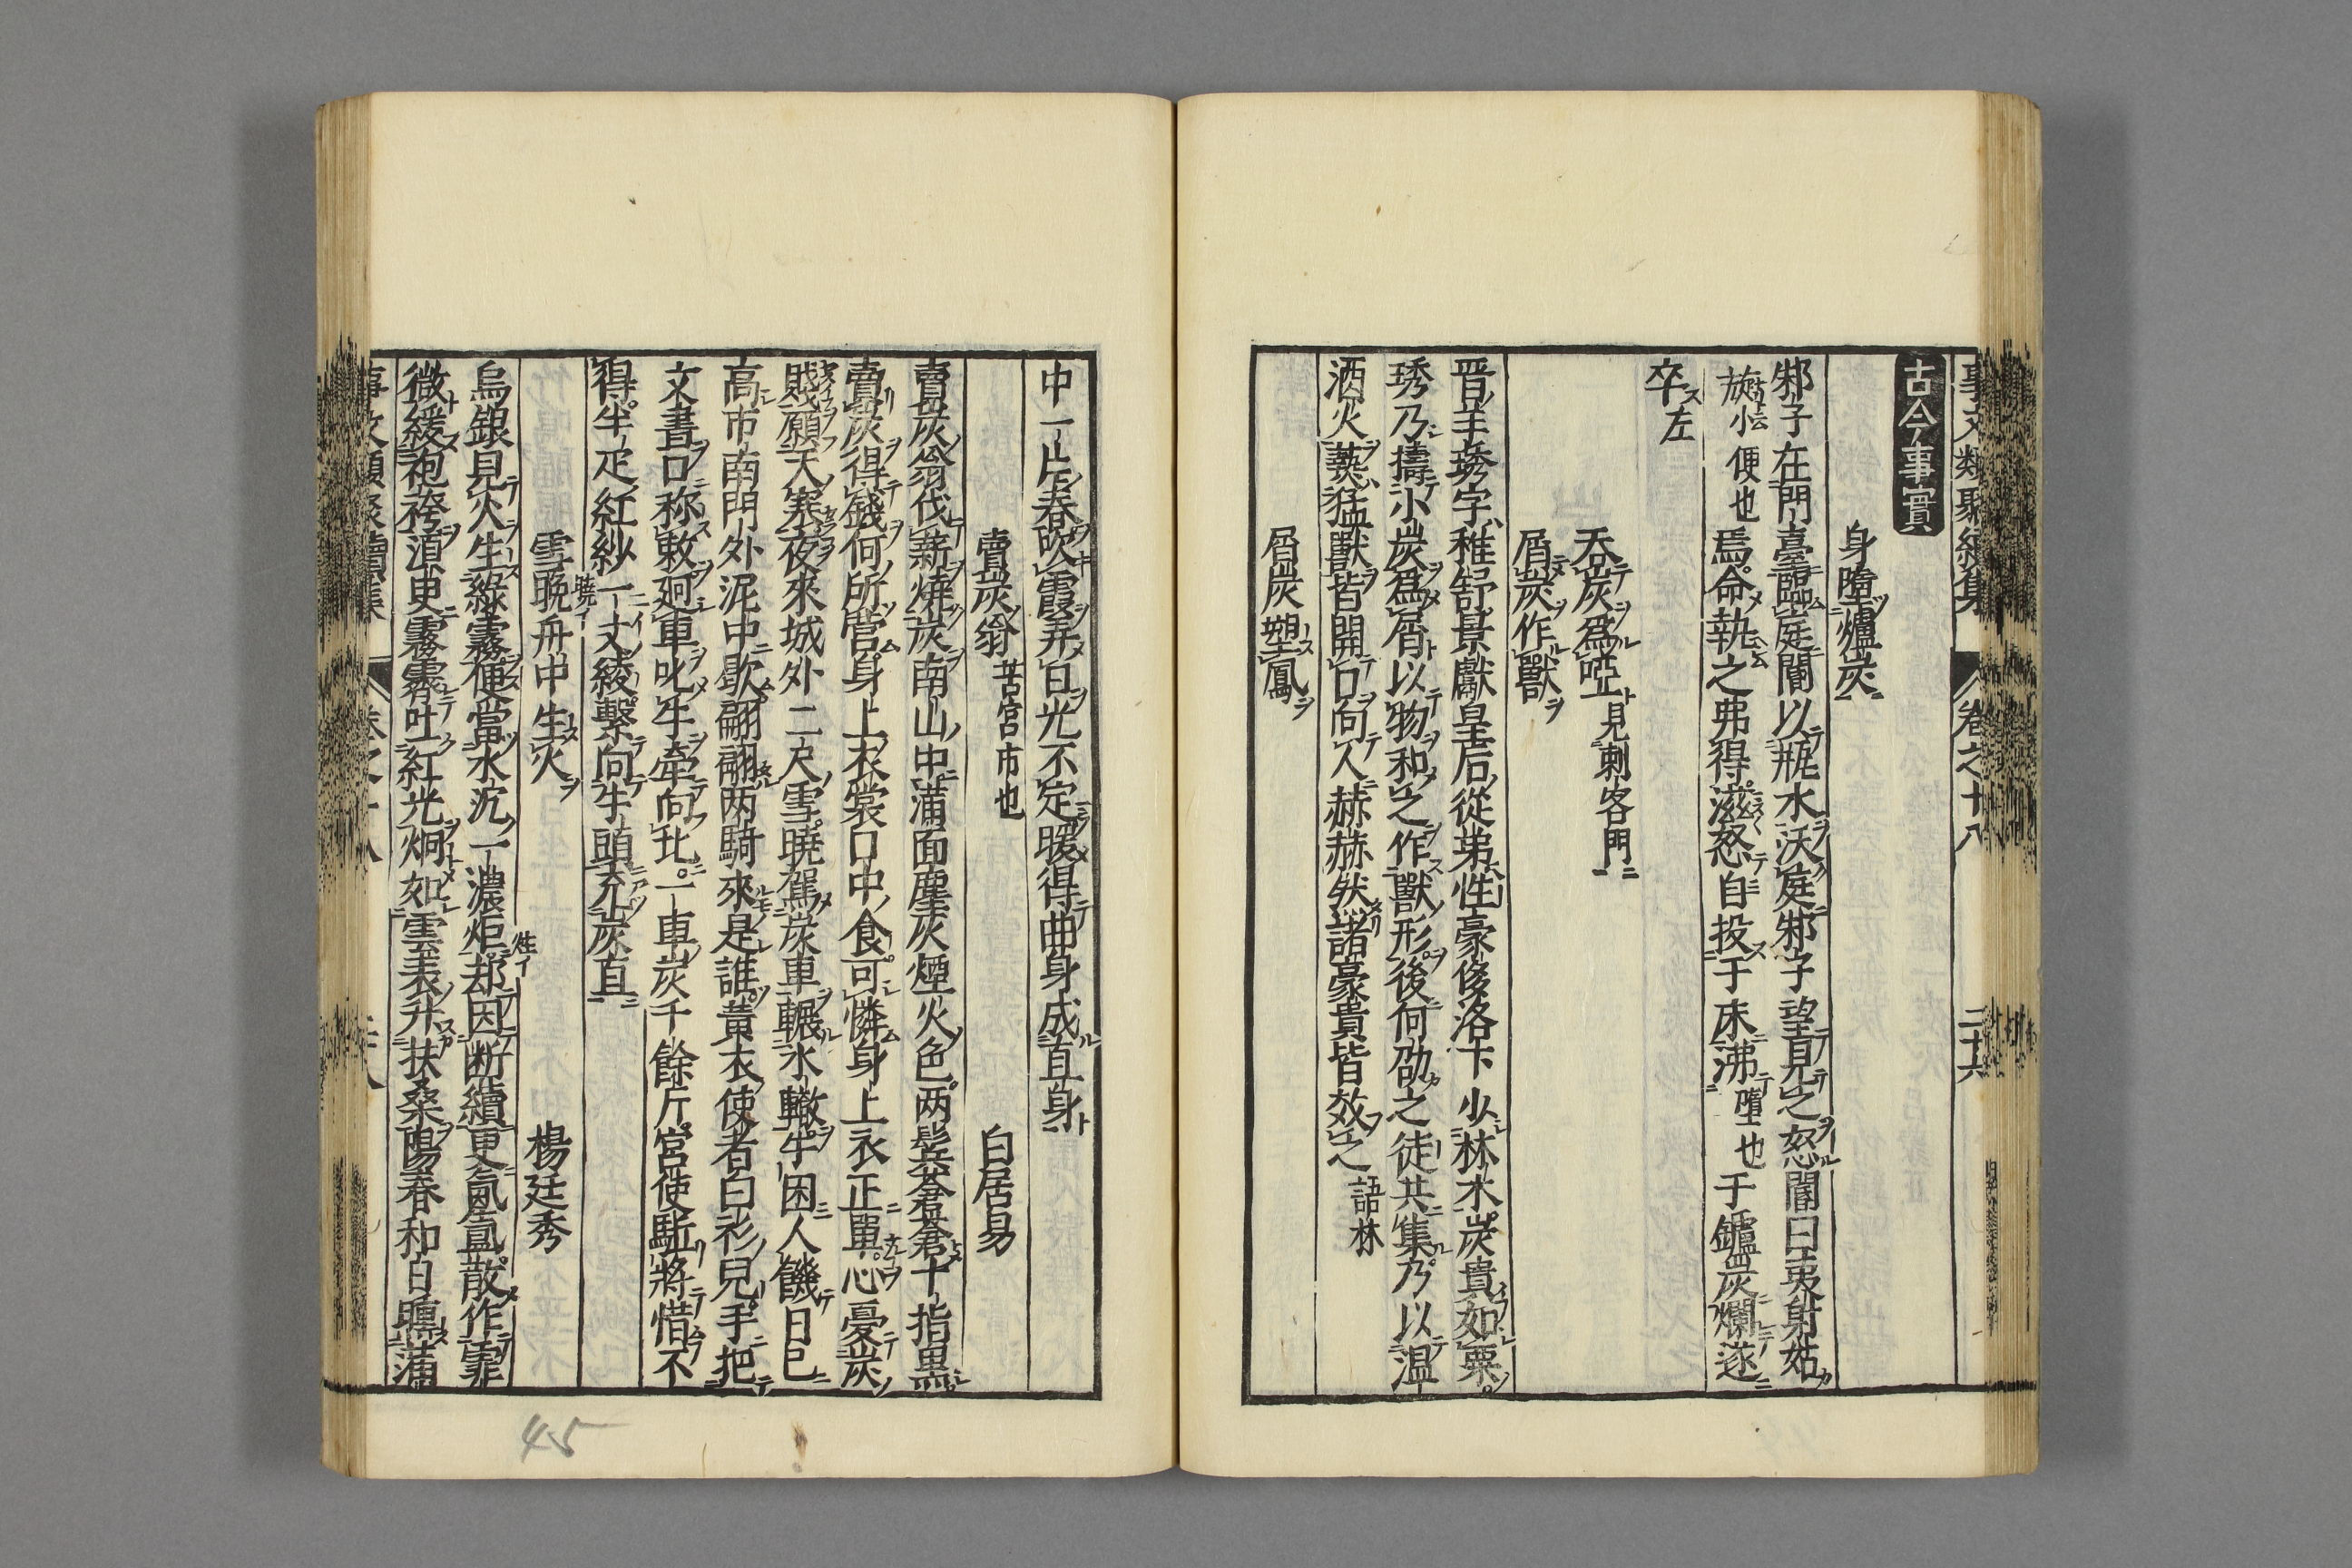 古今事實
身墮爐炭
邾子在門臺臨庭閽以瓶水沃庭邾子望見之怒閽曰夷射姑
旋小便也焉命執之弗得滋怒自投于床沸墮也于鑪炭爛遂
卒左
吞炭爲啞見刺客門
屑炭作獸
晋羊琇字稚舒景獻皇后從弟性豪侈洛下少林木炭貴如粟
琇乃擣小炭爲屑以物和之作獸形後何劭之徒共集乃以温
酒火爇猛獸皆開口向人赫赫然諸豪貴皆效之語林
屑炭塑鳳
中一片春吹霞弄日光不定暖得曲身成直身
賣炭翁苦宮市也 白居易
賣炭翁伐薪燒炭南山中滿面塵灰煙火色两鬓蒼蒼十指黒
賣炭得錢何所營身上衣裳口中食可憐身上衣正單心憂炭
賤願天寒夜來城外一尺雪曉駕炭車輾氷轍牛困人饑日已
高市南門外泥中歇翩翩两騎來是誰黃衣使者白衫兒手把
文書口称敕廻車叱牛牽向北一車炭千餘斤宮使駈將惜不
得半疋紅紗一丈綾繫向牛頭充炭直
雪晚舟中生火 楊廷秀
曉イ
烏銀見火生綠霧便當水沉一濃炷却因断續更氤氲散作霏
微緩袍袴湏臾霧霽吐紅光炯如雲表升扶桑陽春和日曛滿